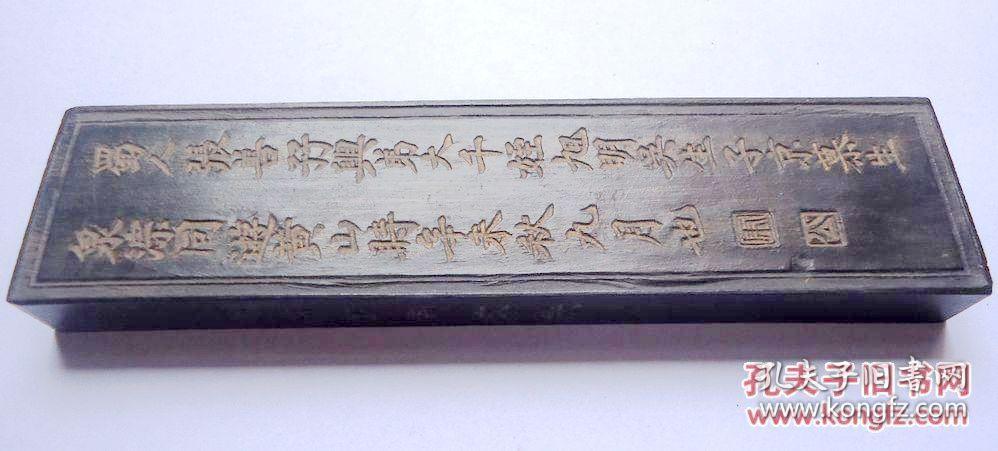 蜀人張善孖與弟大千姪旭明吳生子京慕生
泉淙同遊黃山時辛未秋九月也
孔夫子旧书网
www.kongfz.com